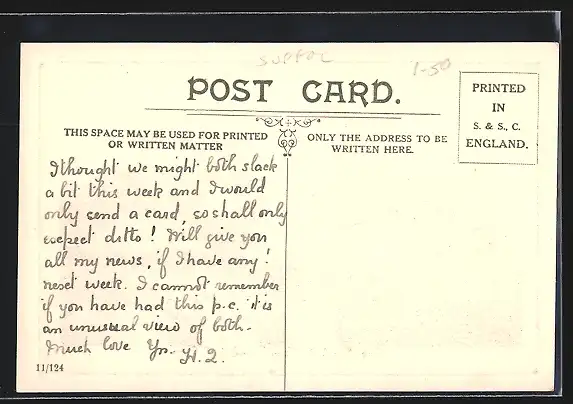 SUFFOL
1-50
POST CARD.
PRINTED
IN
S. & S., C.
ENGLAND.
THIS SPACE MAY BE USED FOR PRINTED
OR WRITTEN MATTER
ONLY THE ADDRESS TO BE
WRITTEN HERE.
I thought we might both slack
a bit this week and I would
only send a card, so shall only
expect ditto! Will give you
all my news, if I have any!
next week. I cannot remember
if you have had this p.c. it is
an unusual view of both.
Much love Yrs. H. Q.
11/124